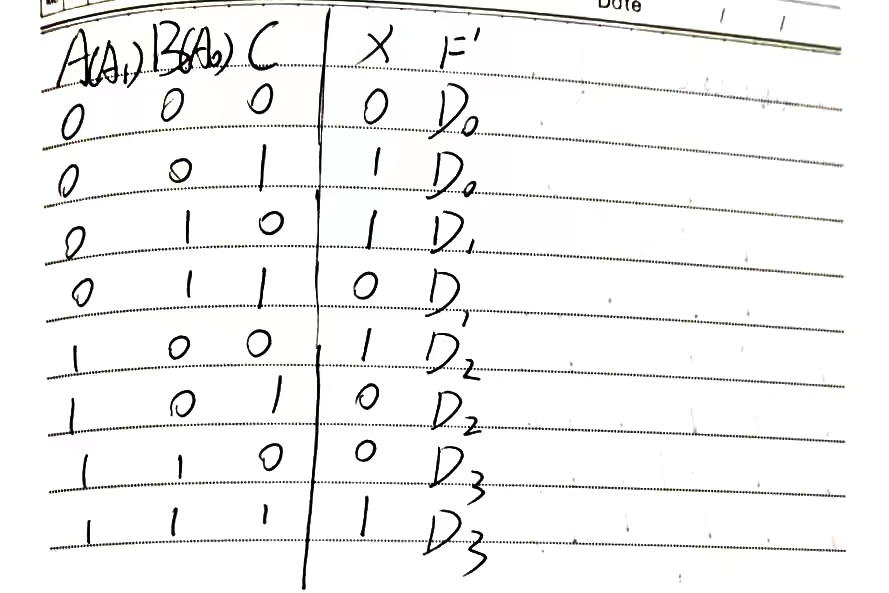 Date / /
A(A₁) B(A₀) C X F'
0 0 0 0 D₀
0 0 1 1 D₀
0 1 0 1 D₁
0 1 1 0 D₁
1 0 0 1 D₂
1 0 1 0 D₂
1 1 0 0 D₃
1 1 1 1 D₃